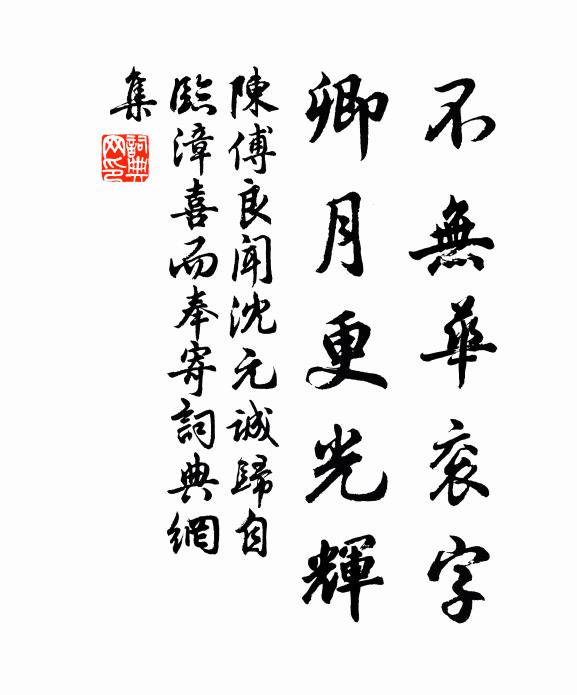 不無華袞字
卿月更光輝
陳傅良聞沈元誠歸自
臨漳喜而奉寄詞典網
集
詞典
网印